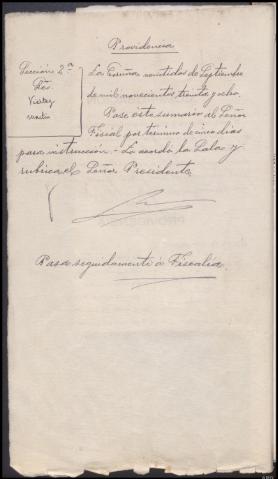 Providencia
Sección 2ª
Sres.
La Coruña veintidos de Septiembre
de mil novecientos treinta y ocho.
Pase este sumario al Señor
Fiscal por término de cinco días
para instrucción.- Lo acordó la Sala y
rubrica el Señor Presidente,
Pasa seguidamente á Fiscalía.